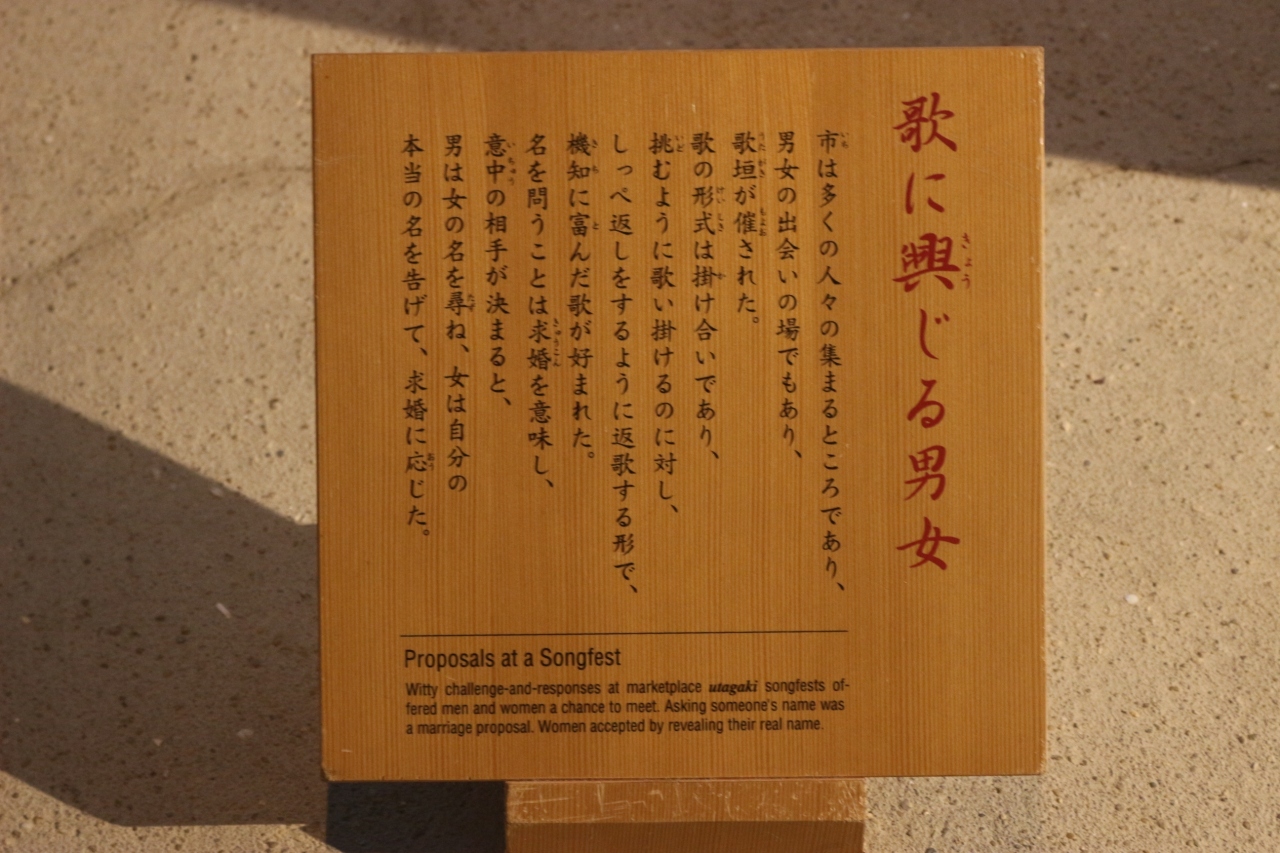 歌に興じる男女
市は多くの人々の集まるところであり、
男女の出会いの場でもあり、
歌垣が催された。
歌の形式は掛け合いであり、
挑むように歌い掛けるのに対し、
しっぺ返しをするように返歌する形で、
機知に富んだ歌が好まれた。
名を問うことは求婚を意味し、
意中の相手が決まると、
男は女の名を尋ね、女は自分の
本当の名を告げて、求婚に応じた。
Proposals at a Songfest
Witty challenge-and-responses at marketplace utagaki songfests of-
fered men and women a chance to meet. Asking someone's name was
a marriage proposal. Women accepted by revealing their real name.